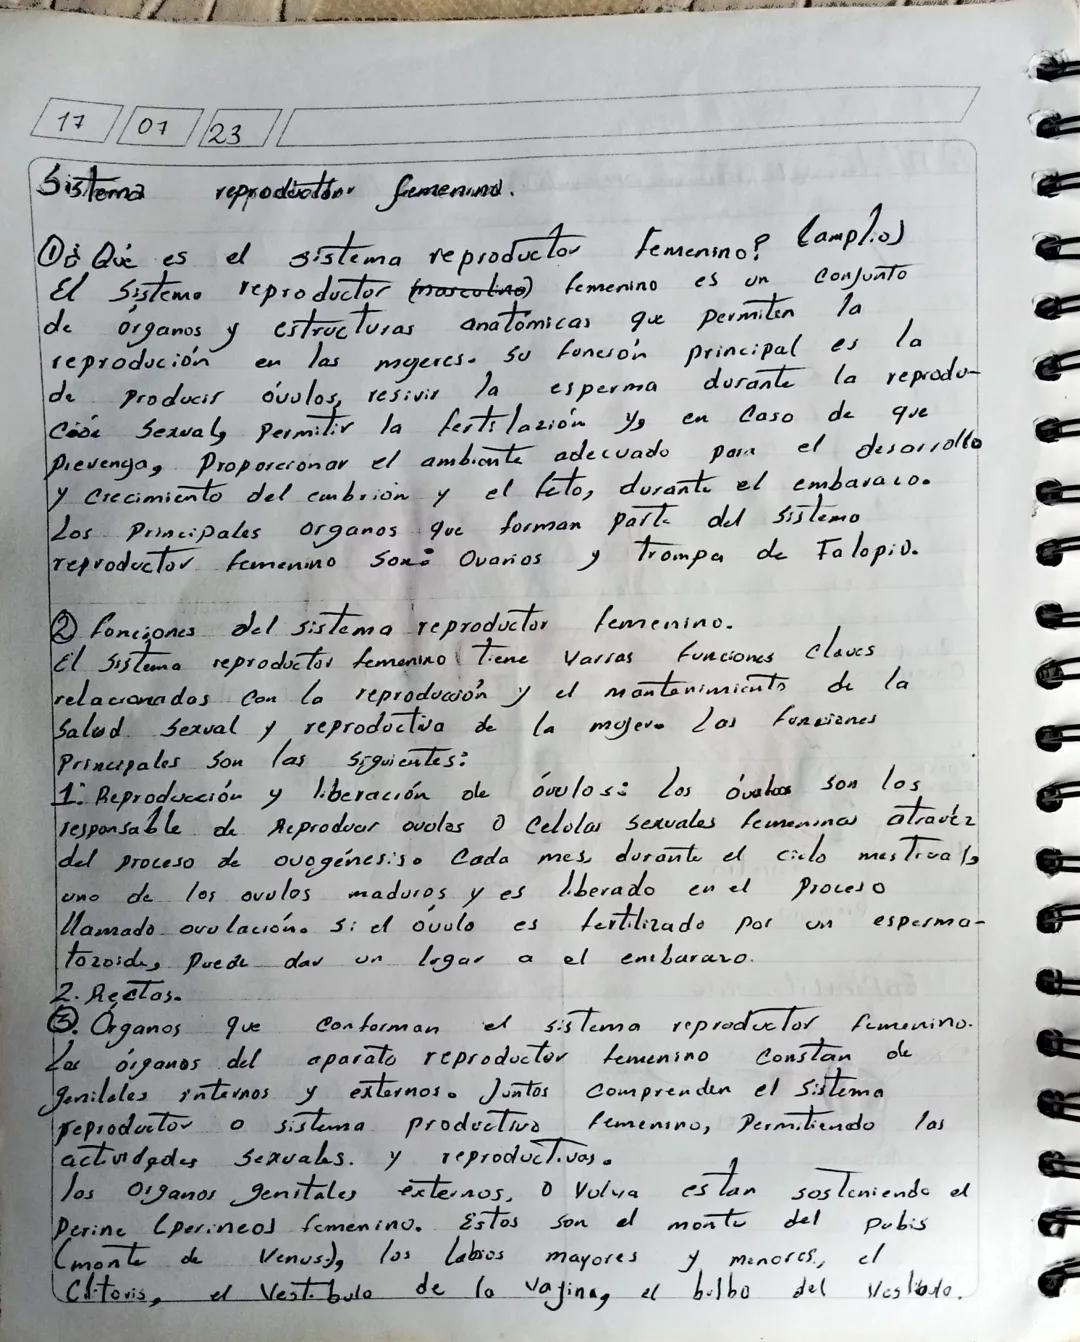 17 07 23
Sistema reproductor femenino.
① ¿Qué es el sistema reproductor femenino? (amplio)
El sistema reproductor (mascolino) femenino es un conjunto
de órganos y estructuras anatómicas que permiten la
reprodución en las mujeres. Su función principal es la
de producir óvulos, resivir la esperma durante la reprodu-
sexual, permitir la y, en caso de que
prevenga, proporcionar el ambiente adecuado para el desarrollo
y crecimiento del embrión y el feto, durante el embaraco.
Los principales organos que forman parte del sistema
reproductor femenino son: Ovarios y trompa de Falopio.
② Fonciones del sistema reproductor femenino.
El sistema reproductor femenino tiene varias funciones claves
relacionadas con la reproducción y el mantenimiento de la
salud sexual y reproductiva de la mujer. Las funsiones
principales son las siguientes:
1. Reproducción y liberación de óvulos: Los son los
responsable de Reproducir ovolos o Celolas sexuales femeninas atravéz
del proceso de ovogénesis. Cada mes, durante el ciclo
uno de los ovulos maduros y es liberado en el proceso
llamado ovulación. Si el óvulo es fertilizado por un esperma-
tozoide, puede dar un logar a el embarazo.
2. Rectas.
③. Órganos que conforman el sistema reproductor femenino.
Los órganos del aparato reproductor femenino constan de
genitales internos y externos. Juntos comprenden el sistema
reproductor o sistema productivo femenino, permitiendo las
actividades sexuales. y reproductivas.
los organos genitales externos, o vulva estan sosteniendo el
perine (perineo) femenino. Estos son el monte del pubis
(monte de Venus), los labios mayores y menores, el
Clitoris, el vestibulo de la vagina, el bulbo del